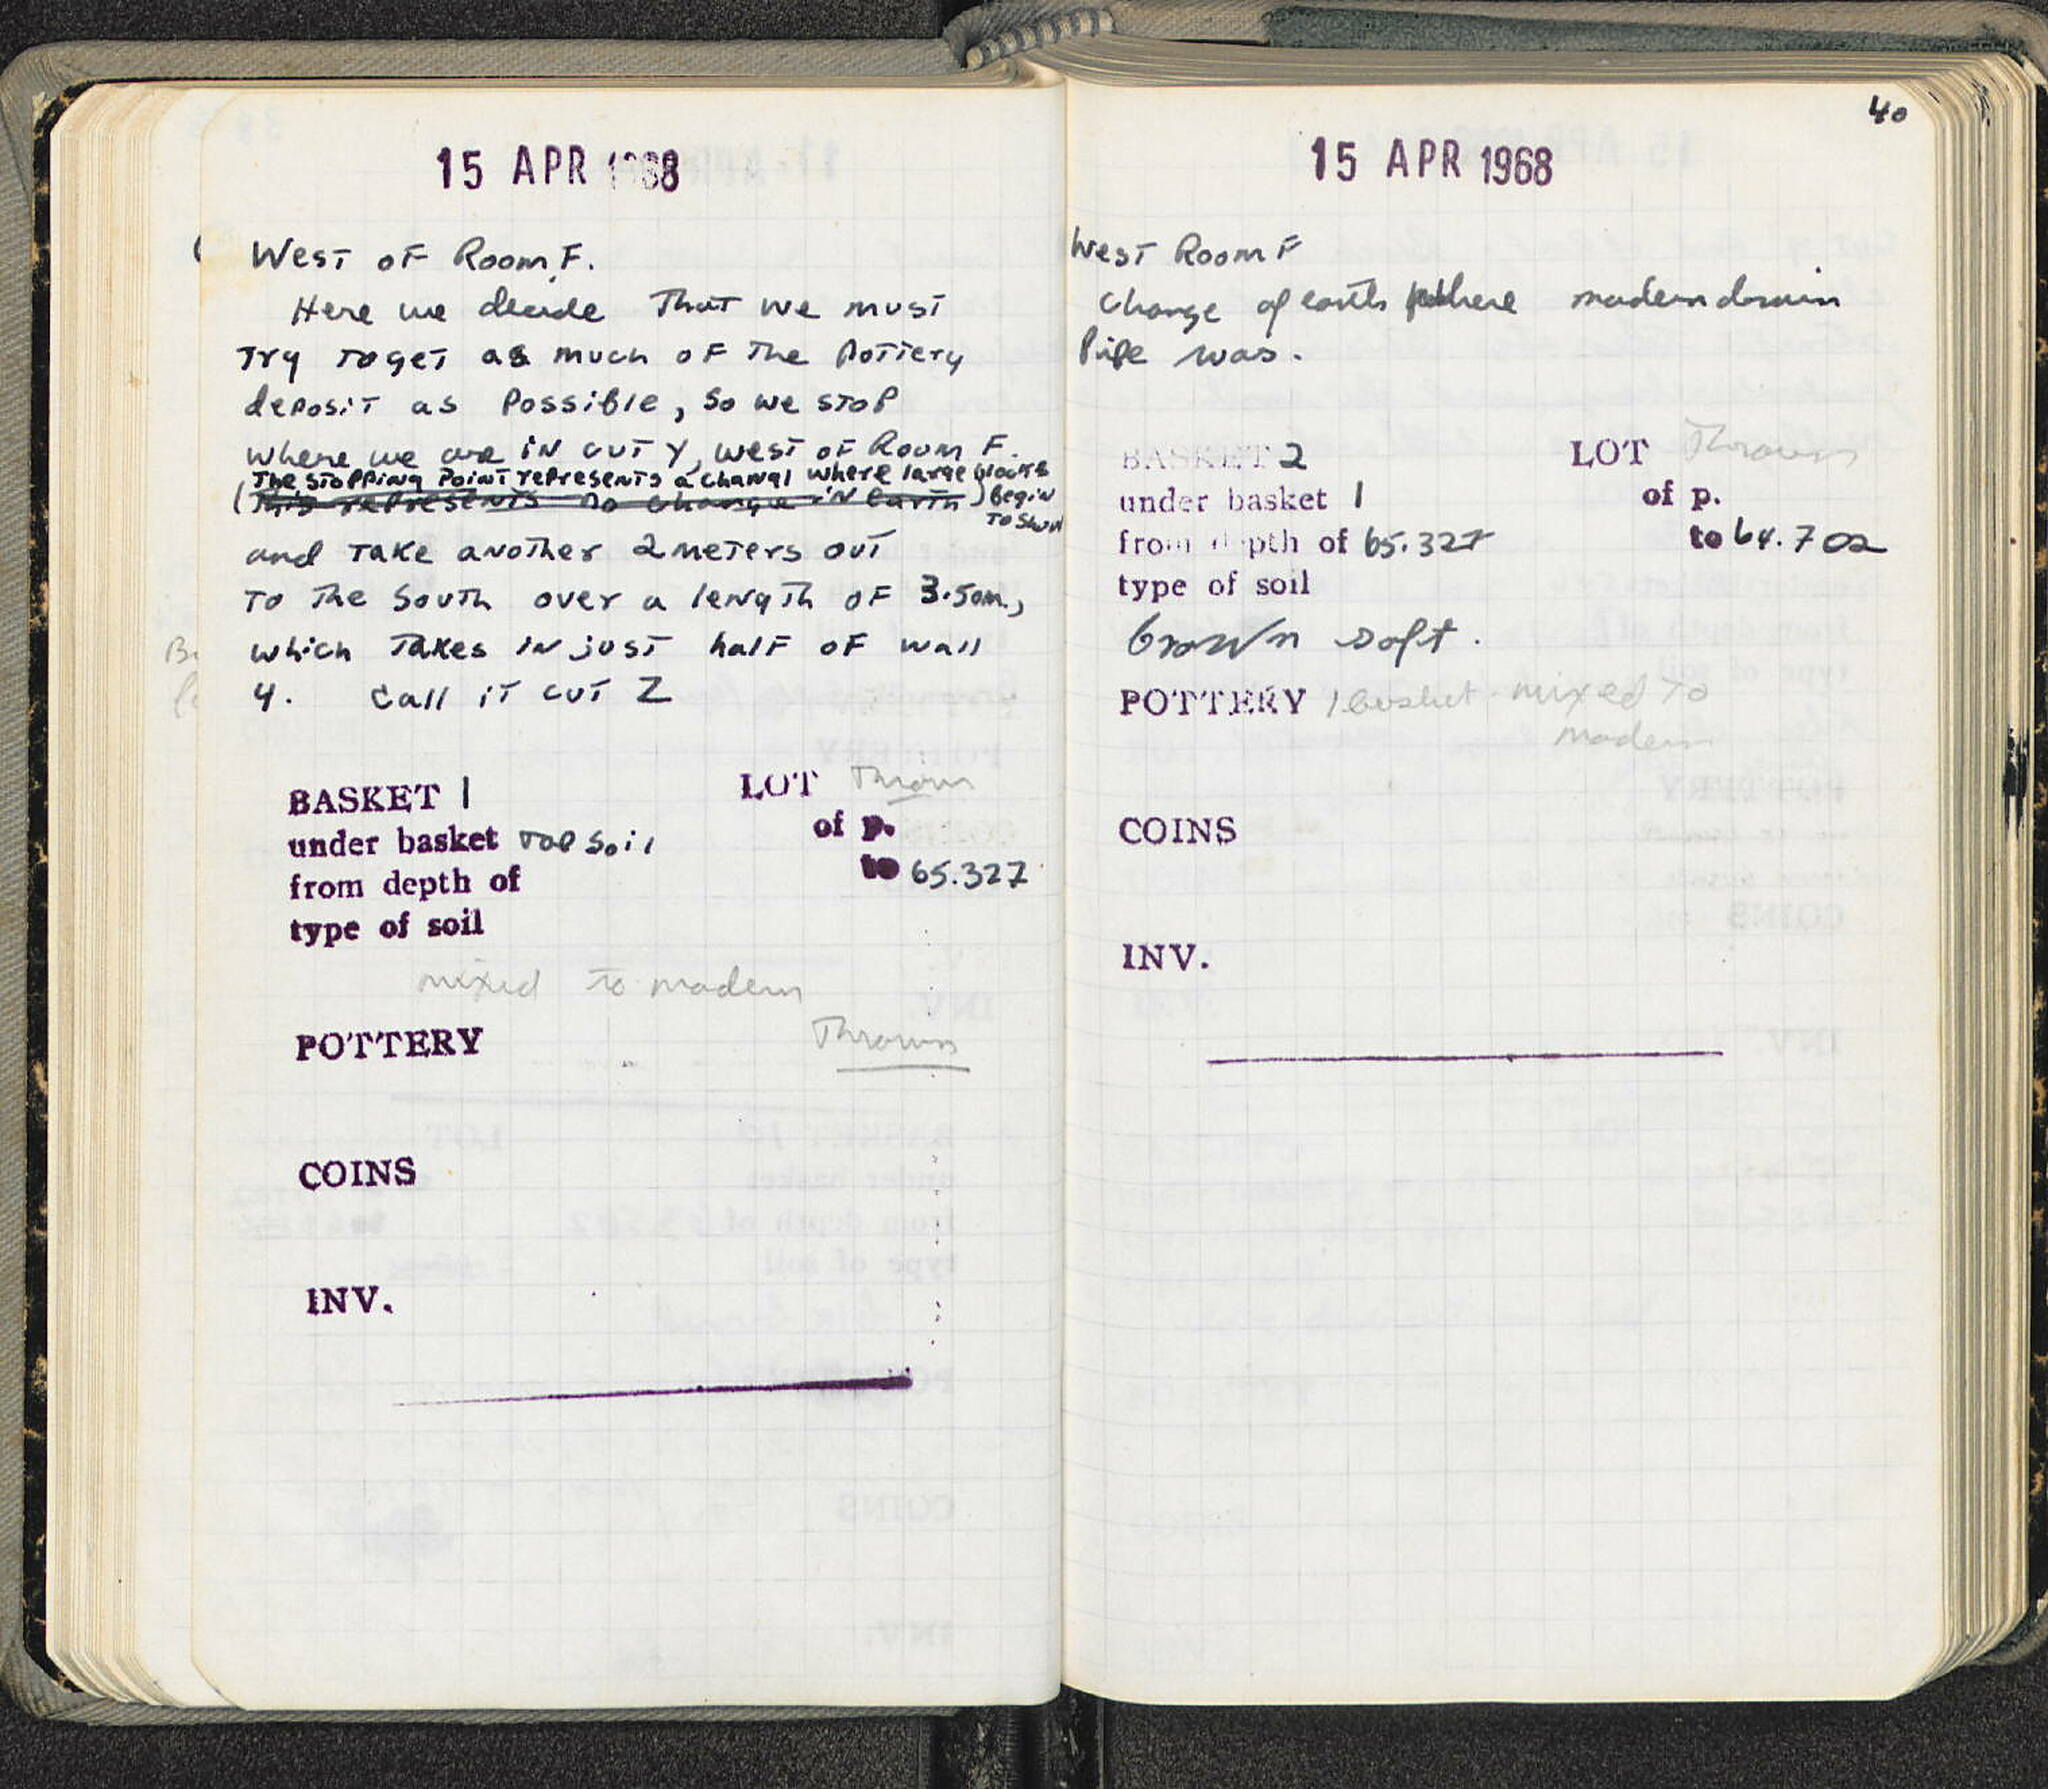 15 APR 1968
West of Room F.
Here we decide that we must
try to get as much of the pottery
deposit as possible, so we stop
where we are in cut Y, west of Room F.
The stopping point represents a change where large blocks
(This represents no change in earth) begin
to show
and take another 2 meters out
to the South over a length of 3.50m.,
which takes in just half of wall
4. Call it cut Z
BASKET 1 LOT Thrown
under basket Top soil of p.
from depth of to 65.327
type of soil
mixed to modern
POTTERY Thrown
COINS
INV.
40
15 APR 1968
West Room F
Change of earth where modern drain
pipe was.
BASKET 2 LOT Thrown
under basket 1 of p.
from depth of 65.327 to 64.702
type of soil
brown soft.
POTTERY 1 basket mixed to
modern
COINS
INV.